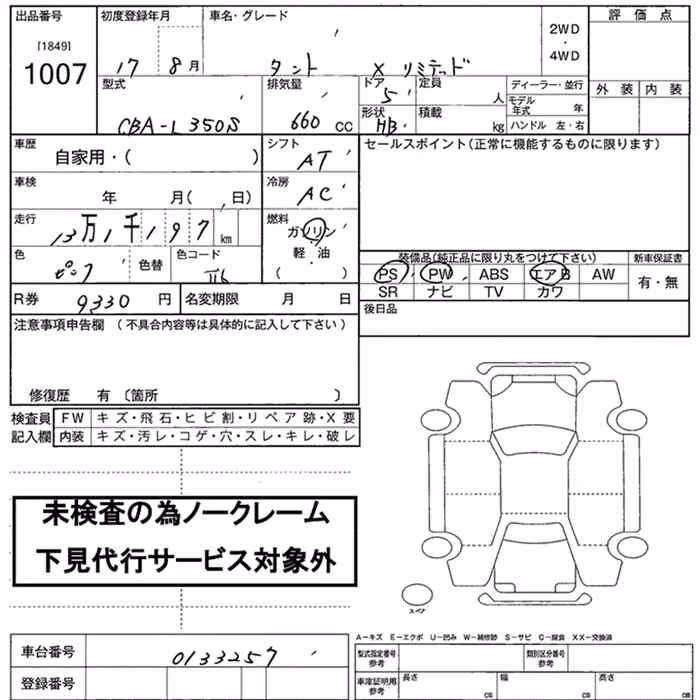 出品番号 初度登録年月 車名・グレード 2WD・4WD 評価点
[1849]
1007
17 8月 タント X リミテッド
型式 排気量 ドア 定員 ディーラー・並行 外装 内装
CBA-L350S 660 CC 5 人 モデル年式 年
形状 積載
HB kg ハンドル 左・右
車歴 自家用・( ) シフト AT セールスポイント(正常に機能するものに限ります)
車検 年 月( 日) 冷房 AC
走行 13万1千197km 燃料 ガソリン
軽・油
( )
色 ピンク 色替 色コード
装備品(純正品に限り丸をつけて下さい) 新車保証書
PS PW ABS エアB AW 有・無
SR ナビ TV カワ
R券 9330 円 名変期限 月 日 後日品
注意事項申告欄 (不具合内容等は具体的に記入して下さい)
修復歴 有 〔箇所 〕
検査員 FW キズ・飛石・ヒビ割・リペア跡・X要
記入欄 内装 キズ・汚レ・コゲ・穴・スレ・キレ・破レ
未検査の為ノークレーム
下見代行サービス対象外
スペア
A−キズ E−エクボ U−凹み W−補修跡 S−サビ C−腐食 XX−交換済
車台番号 0133257 型式指定番号 参考 類別区分番号 参考
登録番号 車庫証明用 参考 長さ cm 幅 cm 高さ cm